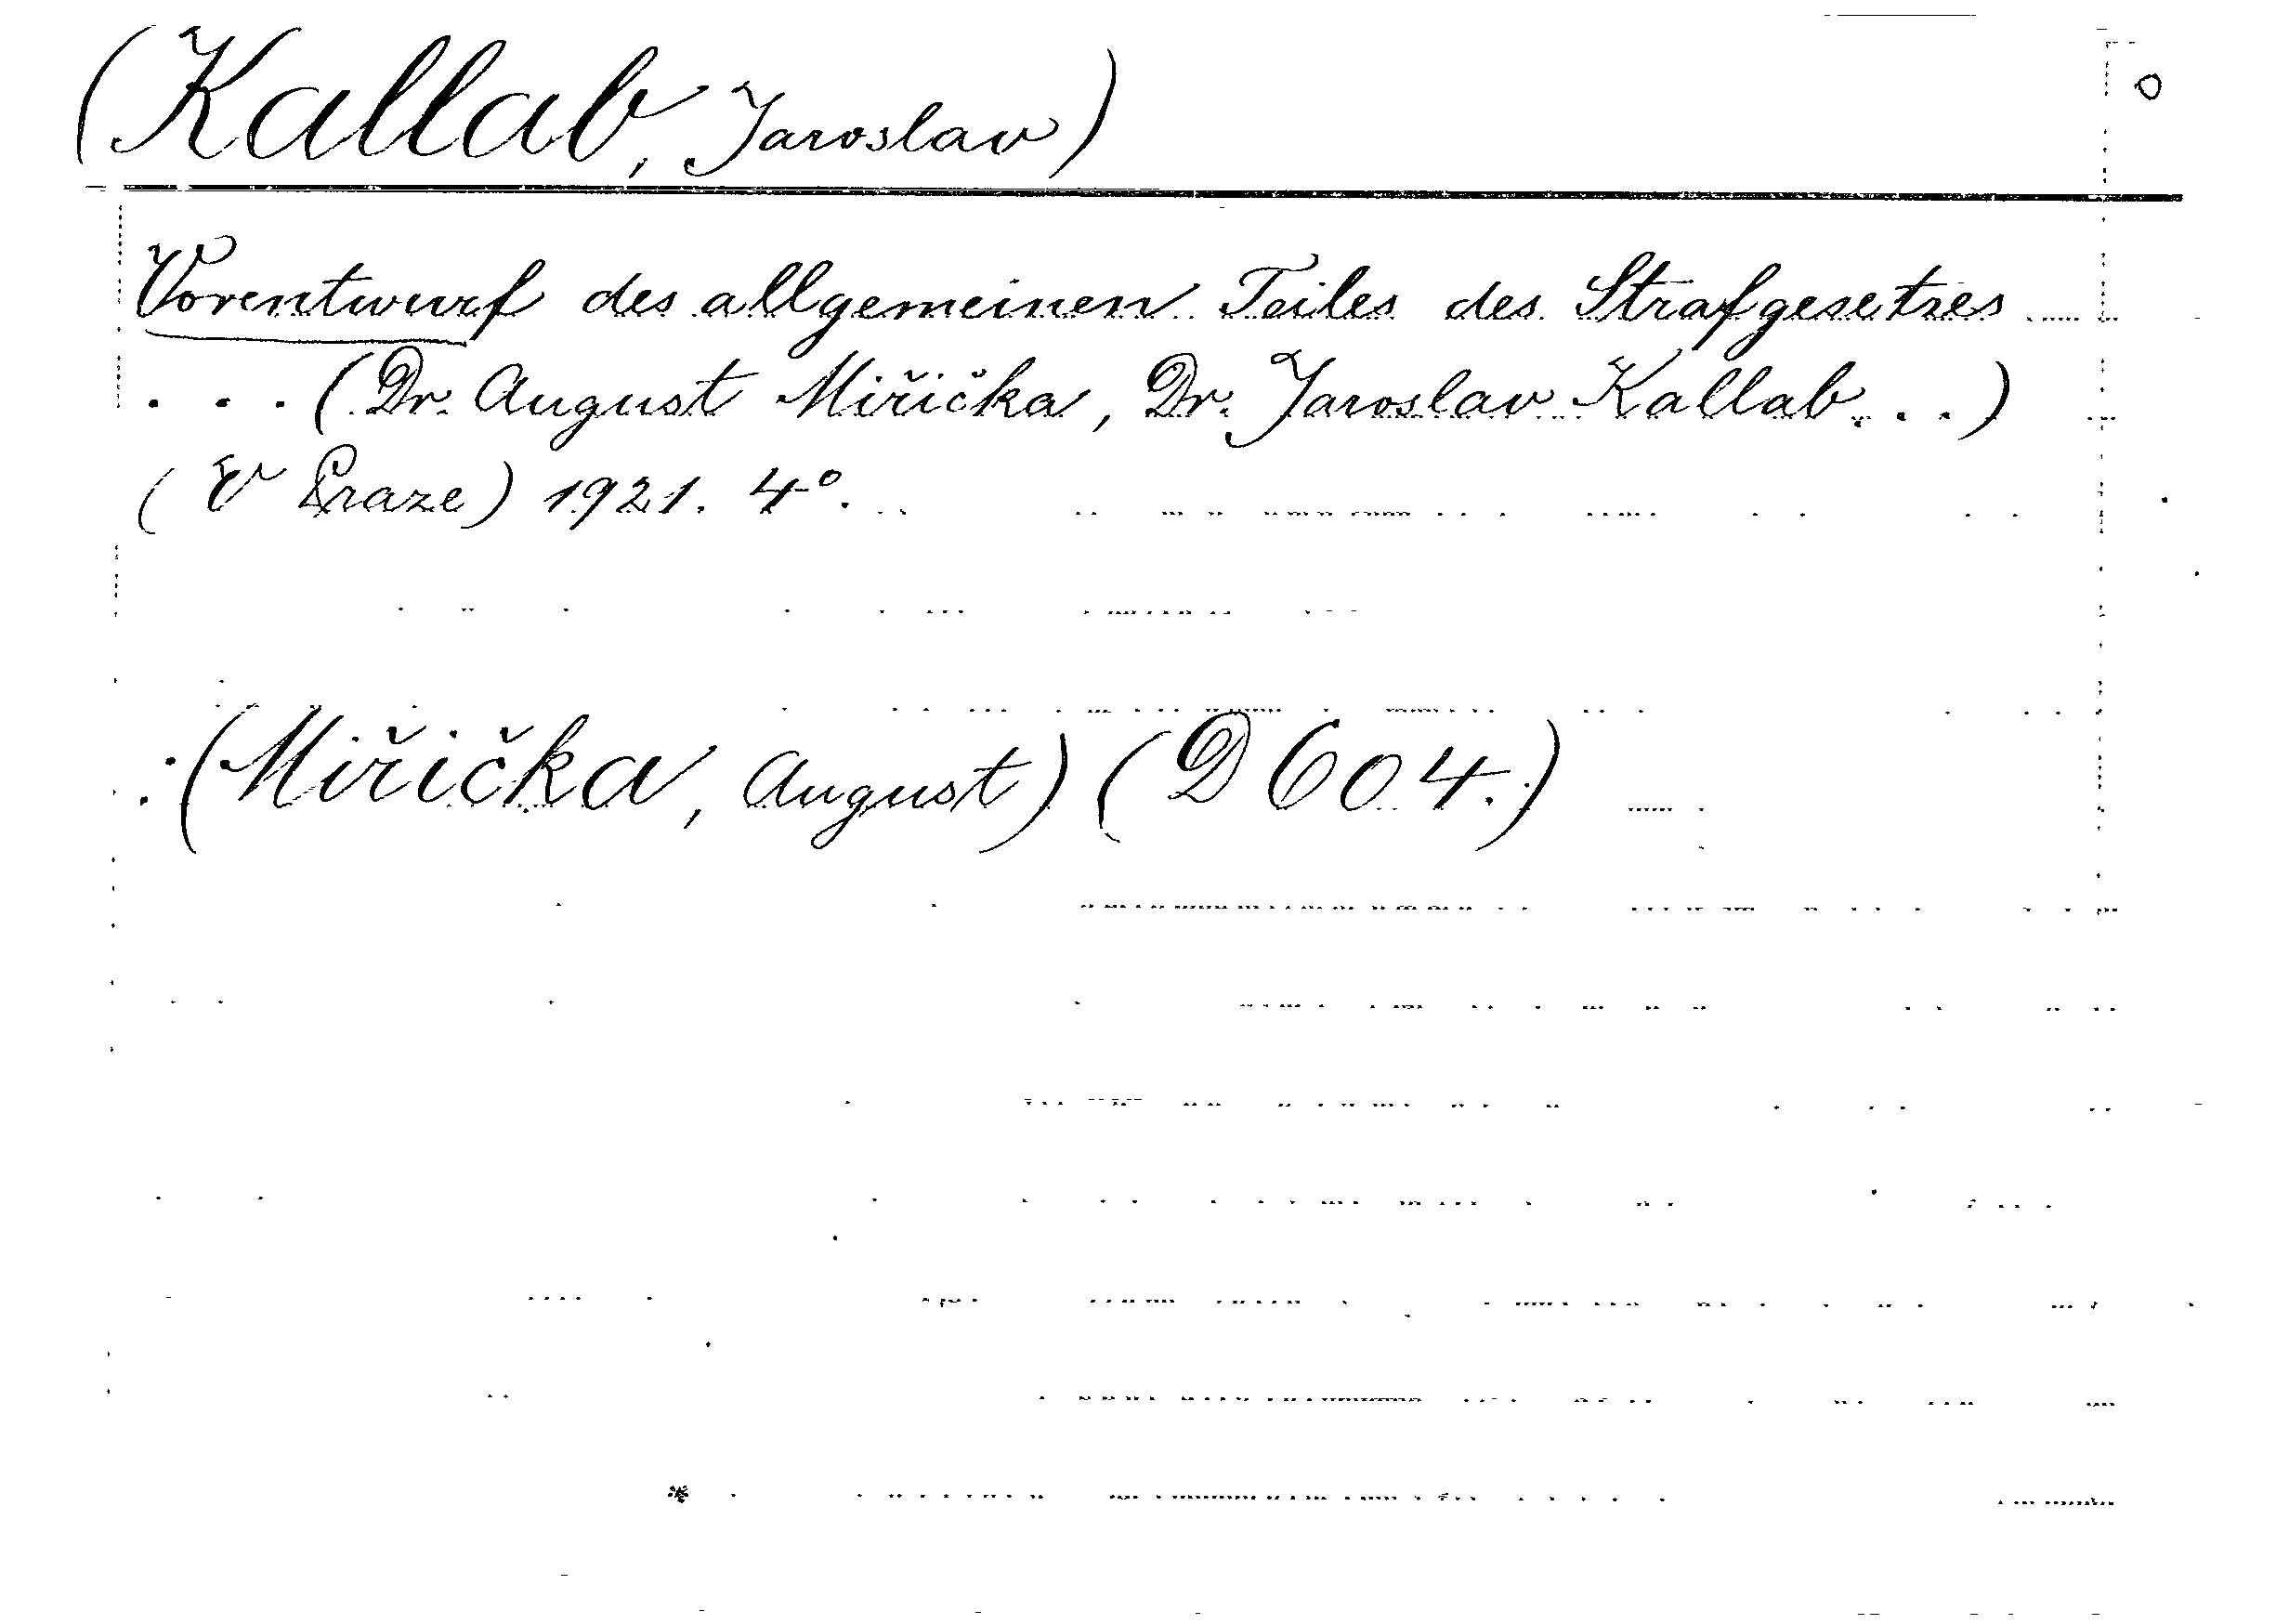 (Kallab, Jaroslav) o
Vorentwurf des allgemeinen Teiles des Strafgesetzes
. . . (Dr. August Miřička, Dr. Jaroslav Kallab. . .)
(V Praze) 1921. 4°.
:(Miřička, August) (D 604.)